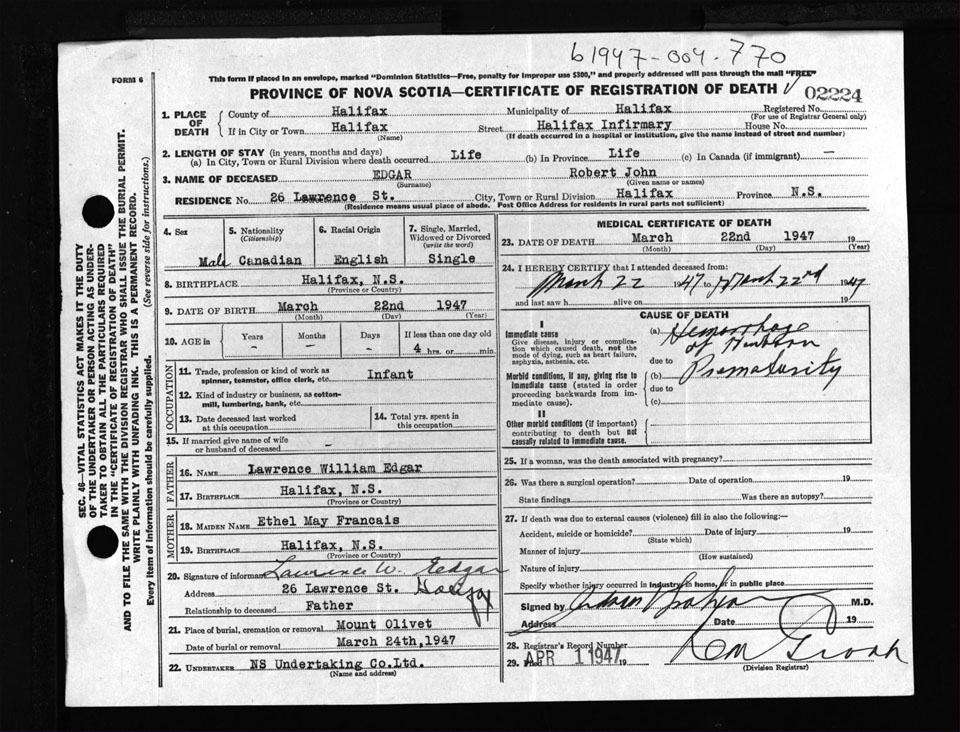 61947-004-770
FORM 6
This form if placed in an envelope, marked "Dominion Statistics—Free, penalty for improper use $300," and properly addressed will pass through the mail "FREE"
PROVINCE OF NOVA SCOTIA—CERTIFICATE OF REGISTRATION OF DEATH 02224
SEC. 46—VITAL STATISTICS ACT MAKES IT THE DUTY
OF THE UNDERTAKER OR PERSON ACTING AS UNDER-
TAKER TO OBTAIN ALL THE PARTICULARS REQUIRED
IN THE "CERTIFICATE OF REGISTRATION OF DEATH"
AND TO FILE THE SAME WITH THE DIVISION REGISTRAR WHO SHALL ISSUE THE BURIAL PERMIT.
WRITE PLAINLY WITH UNFADING INK. THIS IS A PERMANENT RECORD.
Every item of information should be carefully supplied. (See reverse side for instructions.)
1. PLACE OF DEATH
County of Halifax Municipality of Halifax Registered No.
(For use of Registrar General only)
If in City or Town Halifax Street Halifax Infirmary House No.
(Name) (If death occurred in a hospital or institution, give the name instead of street and number)
2. LENGTH OF STAY (in years, months and days)
(a) In City, Town or Rural Division where death occurred Life (b) In Province Life (c) In Canada (if immigrant) —
3. NAME OF DECEASED EDGAR Robert John
(Surname) (Given name or names)
RESIDENCE No. 26 Lawrence St. City, Town or Rural Division Halifax Province N.S.
(Residence means usual place of abode. Post Office Address for residents in rural parts not sufficient)
4. Sex Male
5. Nationality (Citizenship) Canadian
6. Racial Origin English
7. Single, Married, Widowed or Divorced (write the word) Single
8. BIRTHPLACE Halifax, N.S.
(Province or Country)
9. DATE OF BIRTH March 22nd 1947
(Month) (Day) (Year)
10. AGE in Years Months Days If less than one day old
- - - 4 hrs. or min.
OCCUPATION
11. Trade, profession or kind of work as spinner, teamster, office clerk, etc. Infant
12. Kind of industry or business, as cotton-mill, lumbering, bank, etc.
13. Date deceased last worked at this occupation
14. Total yrs. spent in this occupation
15. If married give name of wife or husband of deceased -
FATHER
16. NAME Lawrence William Edgar
17. BIRTHPLACE Halifax, N.S.
(Province or Country)
MOTHER
18. MAIDEN NAME Ethel May Francais
19. BIRTHPLACE Halifax, N.S.
(Province or Country)
20. Signature of informant Lawrence W. Edgar
Address 26 Lawrence St. Halifax
Relationship to deceased Father
21. Place of burial, cremation or removal Mount Olivet
Date of burial or removal March 24th,1947
22. UNDERTAKER NS Undertaking Co.Ltd.
(Name and address)
MEDICAL CERTIFICATE OF DEATH
23. DATE OF DEATH March 22nd 1947 19
(Month) (Day) (Year)
24. I HEREBY CERTIFY that I attended deceased from:
March 22 1947 to March 22nd 1947
and last saw h alive on 19
CAUSE OF DEATH
I
Immediate cause
Give disease, injury or complica-
tion which caused death, not the
mode of dying, such as heart failure,
asphyxia, asthenia, etc.
(a) Hemorrhage of Newborn
due to
Morbid conditions, if any, giving rise to
immediate cause (stated in order
proceeding backwards from im-
mediate cause).
(b) Prematurity
due to
(c)
II
Other morbid conditions (if important)
contributing to death but not
causally related to immediate cause.
25. If a woman, was the death associated with pregnancy?
26. Was there a surgical operation? Date of operation 19
State findings Was there an autopsy?
27. If death was due to external causes (violence) fill in also the following:—
Accident, suicide or homicide? Date of injury 19
(State which)
Manner of injury
(How sustained)
Nature of injury
Specify whether injury occurred in industry, in home, or in public place
Signed by M.D.
Address Date 19
28. Registrar's Record Number
29. Filed APR 1 1947 19
(Division Registrar)